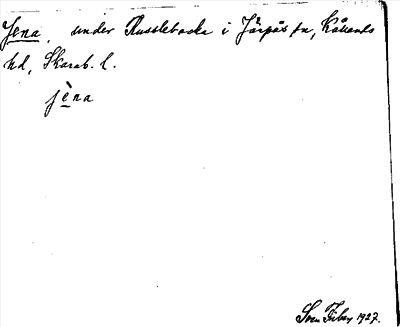 Jena, under Russlebacka i Järpås sn, Kållands
hd, Skarab. l.
jèna
Sven Fiber 1927.